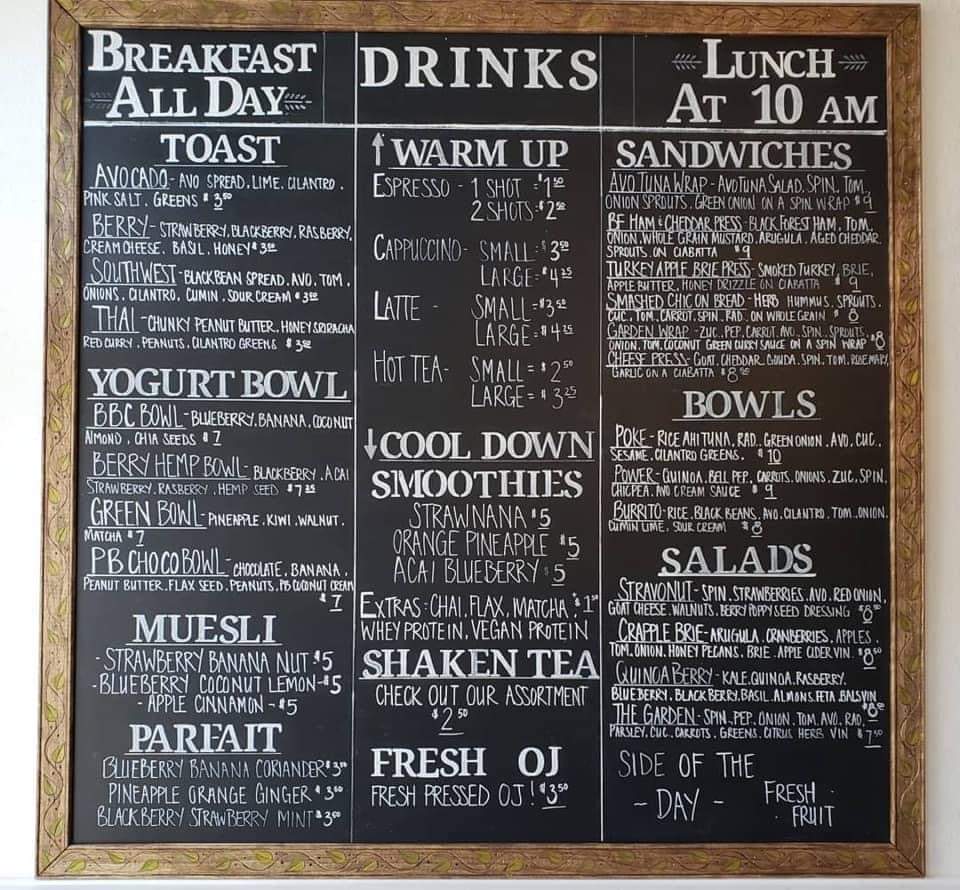 BREAKFAST
ALL DAY
TOAST
AVOCADO - AVO SPREAD. LIME. CILANTRO.
PINK SALT. GREENS $3⁵⁰
BERRY - STRAWBERRY, BLACKBERRY, RASBERRY,
CREAM CHEESE. BASIL. HONEY $3⁵⁰
SOUTHWEST - BLACK BEAN SPREAD. AVO. TOM.
ONIONS. CILANTRO. CUMIN. SOUR CREAM $3⁵⁰
THAI - CHUNKY PEANUT BUTTER. HONEY SRIRACHA
RED CURRY. PEANUTS. CILANTRO GREENS $3⁵⁰
YOGURT BOWL
BBC BOWL - BLUEBERRY. BANANA. COCONUT
ALMOND. CHIA SEEDS $7
BERRY HEMP BOWL - BLACKBERRY. ACAI
STRAWBERRY. RASBERRY. HEMP SEED $7²⁵
GREEN BOWL - PINEAPPLE. KIWI. WALNUT.
MATCHA $7
PB CHOCO BOWL - CHOCOLATE, BANANA.
PEANUT BUTTER. FLAX SEED. PEANUTS. PB COCONUT CREAM
$7
MUESLI
- STRAWBERRY BANANA NUT $5
- BLUEBERRY COCONUT LEMON - $5
- APPLE CINNAMON - $5
PARFAIT
BLUEBERRY BANANA CORIANDER $3⁵⁰
PINEAPPLE ORANGE GINGER $3⁵⁰
BLACKBERRY STRAWBERRY MINT $3⁵⁰
DRINKS
↑ WARM UP
ESPRESSO - 1 SHOT = $1⁵⁰
2 SHOTS = $2⁵⁰
CAPPUCCINO - SMALL = $3⁵⁰
LARGE = $4²⁵
LATTE - SMALL = $3⁵⁰
LARGE = $4²⁵
HOT TEA - SMALL = $2⁵⁰
LARGE = $3²⁵
↓ COOL DOWN
SMOOTHIES
STRAWNANA $5
ORANGE PINEAPPLE $5
ACAI BLUEBERRY $5
EXTRAS: CHAI, FLAX, MATCHA,
WHEY PROTEIN, VEGAN PROTEIN
SHAKEN TEA
CHECK OUT OUR ASSORTMENT
$2⁵⁰
FRESH OJ
FRESH PRESSED OJ! $3⁵⁰
LUNCH
AT 10 AM
SANDWICHES
AVO TUNA WRAP - AVO TUNA SALAD, SPIN, TOM,
ONION SPROUTS. GREEN ONION ON A SPIN WRAP $9
BF HAM & CHEDDAR PRESS - BLACK FOREST HAM, TOM,
ONION. WHOLE GRAIN MUSTARD. ARUGULA. AGED CHEDDAR.
SPROUTS. ON CIABATTA $9
TURKEY APPLE BRIE PRESS - SMOKED TURKEY, BRIE,
APPLE BUTTER, HONEY DRIZZLE ON CIABATTA $9
SMASHED CHIC ON BREAD - HERB HUMMUS. SPROUTS.
CUC. TOM. CARROT. SPIN. RAD. ON WHOLE GRAIN $8
GARDEN WRAP - ZUC. PEP. CARROT. AVO. SPIN. SPROUTS.
ONION. TOM. COCONUT GREEN CURRY SAUCE ON A SPIN WRAP $8
CHEESE PRESS - GOAT. CHEDDAR. GOUDA. SPIN. TOM. ROSEMARY.
GARLIC ON A CIABATTA $8⁵⁰
BOWLS
POKE - RICE AHI TUNA. RAD. GREEN ONION. AVO. CUC.
SESAME. CILANTRO GREENS. $10
POWER - QUINOA. BELL PEP. CARROTS. ONIONS. ZUC. SPIN.
CHICPEA. AVO CREAM SAUCE $9
BURRITO - RICE. BLACK BEANS. AVO. CILANTRO. TOM. ONION.
CUMIN LIME. SOUR CREAM $8
SALADS
STRAVONUT - SPIN. STRAWBERRIES. AVO. RED ONION,
GOAT CHEESE. WALNUTS. BERRY POPPY SEED DRESSING $8⁵⁰
CRAPPLE BRIE - ARUGULA. CRANBERRIES. APPLES.
TOM. ONION. HONEY PECANS. BRIE. APPLE CIDER VIN. $8⁵⁰
QUINOA BERRY - KALE. QUINOA. RASBERRY.
BLUEBERRY. BLACKBERRY. BASIL. ALMONS. FETA. BALS VIN
$8⁵⁰
THE GARDEN - SPIN. PEP. ONION. TOM. AVO. RAD.
PARSLEY. CUC. CARROTS. GREENS. CITRUS HERB VIN $7⁵⁰
SIDE OF THE
- DAY -
FRESH
FRUIT